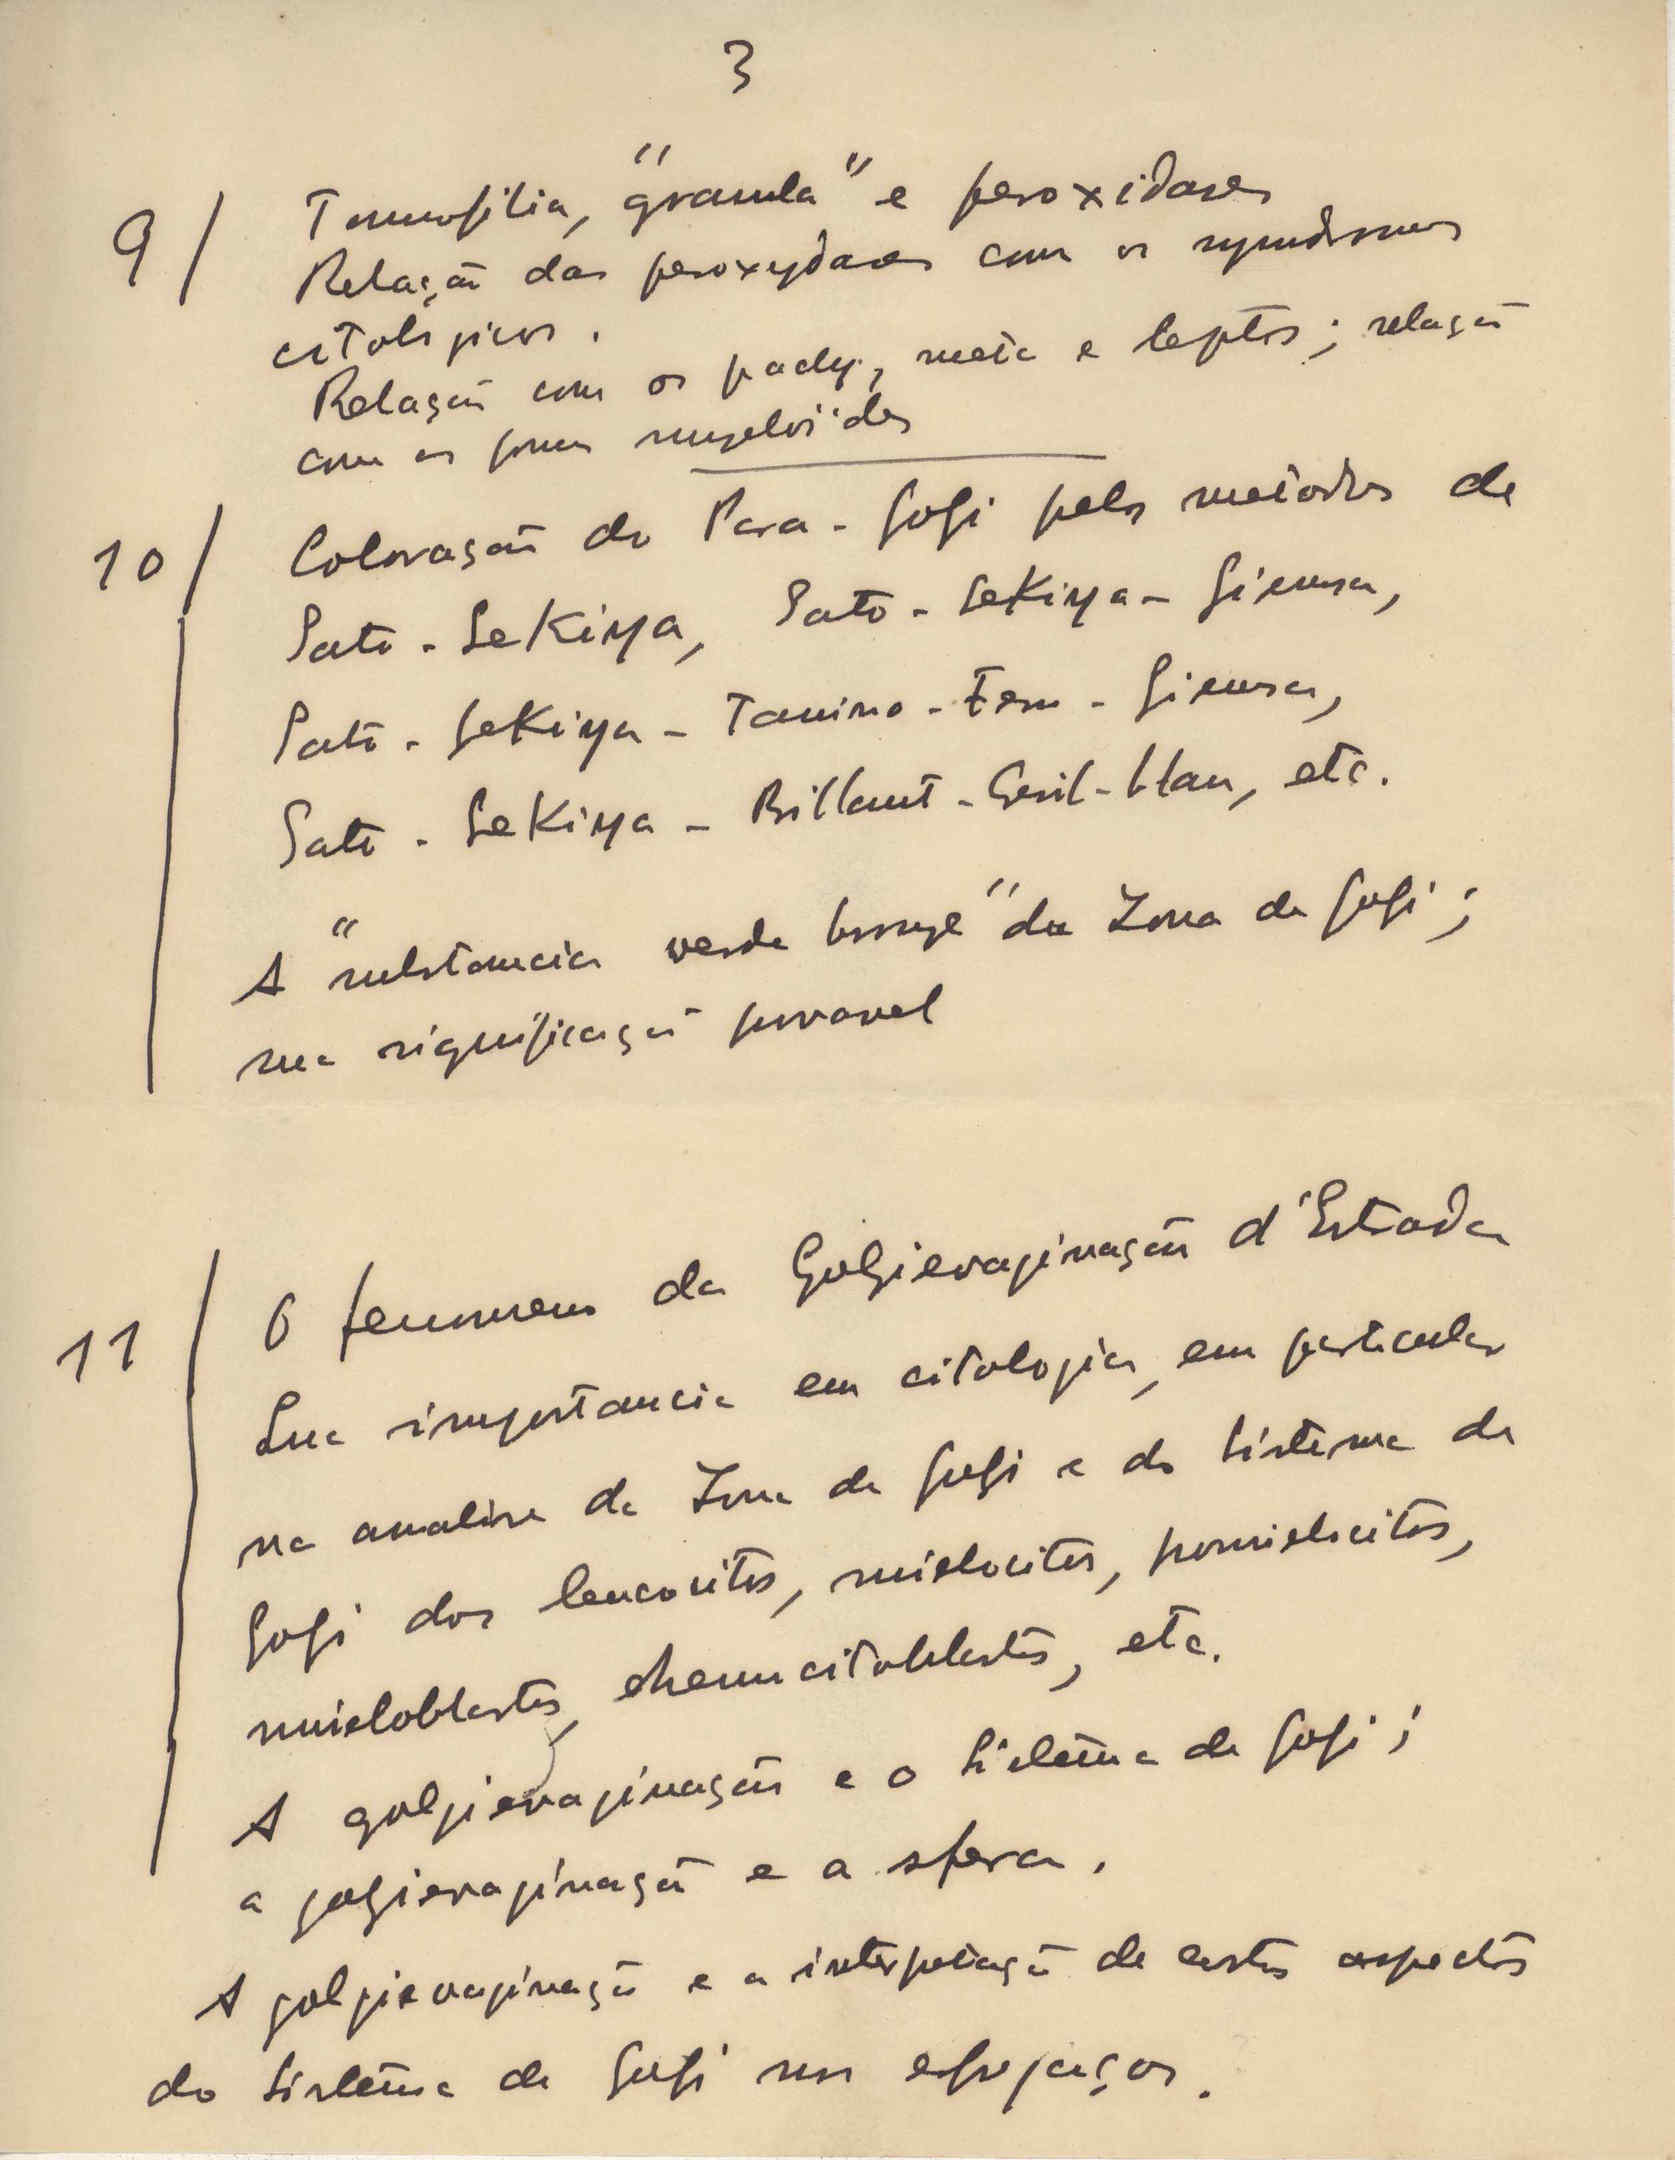 3
9/ Tannofilia, "granula" e peroxidases
Relação das peroxydases com os syndromes
citologicos.
Relação com os pachy, meta e leptos; relação
com as formas myeloïdes
10/ Coloração do Para-Golgi pelos metodos de
Sato-Sekiya, Sato-Sekiya-Giemsa,
Sato-Sekiya-Tanino-Ferro-Giemsa,
Sato-Sekiya-Brillant-Cresil-blau, etc.
A "substancia verde bronze" da Zona de Golgi;
sua significação provavel
11/ O fenomeno da Golgievaginação d'Estrada
Sua importancia em citologia, em particular
na analise da Zona de Golgi e do Sistema de
Golgi dos leucocitos, mielocitos, promielocitos,
mieloblastos, hemocitoblastos, etc.
A golgievaginação e o Sistema de Golgi;
a golgievaginação e a sfera.
A golgievaginação e a interpretação de certos aspectos
do Sistema de Golgi nos esfregaços.